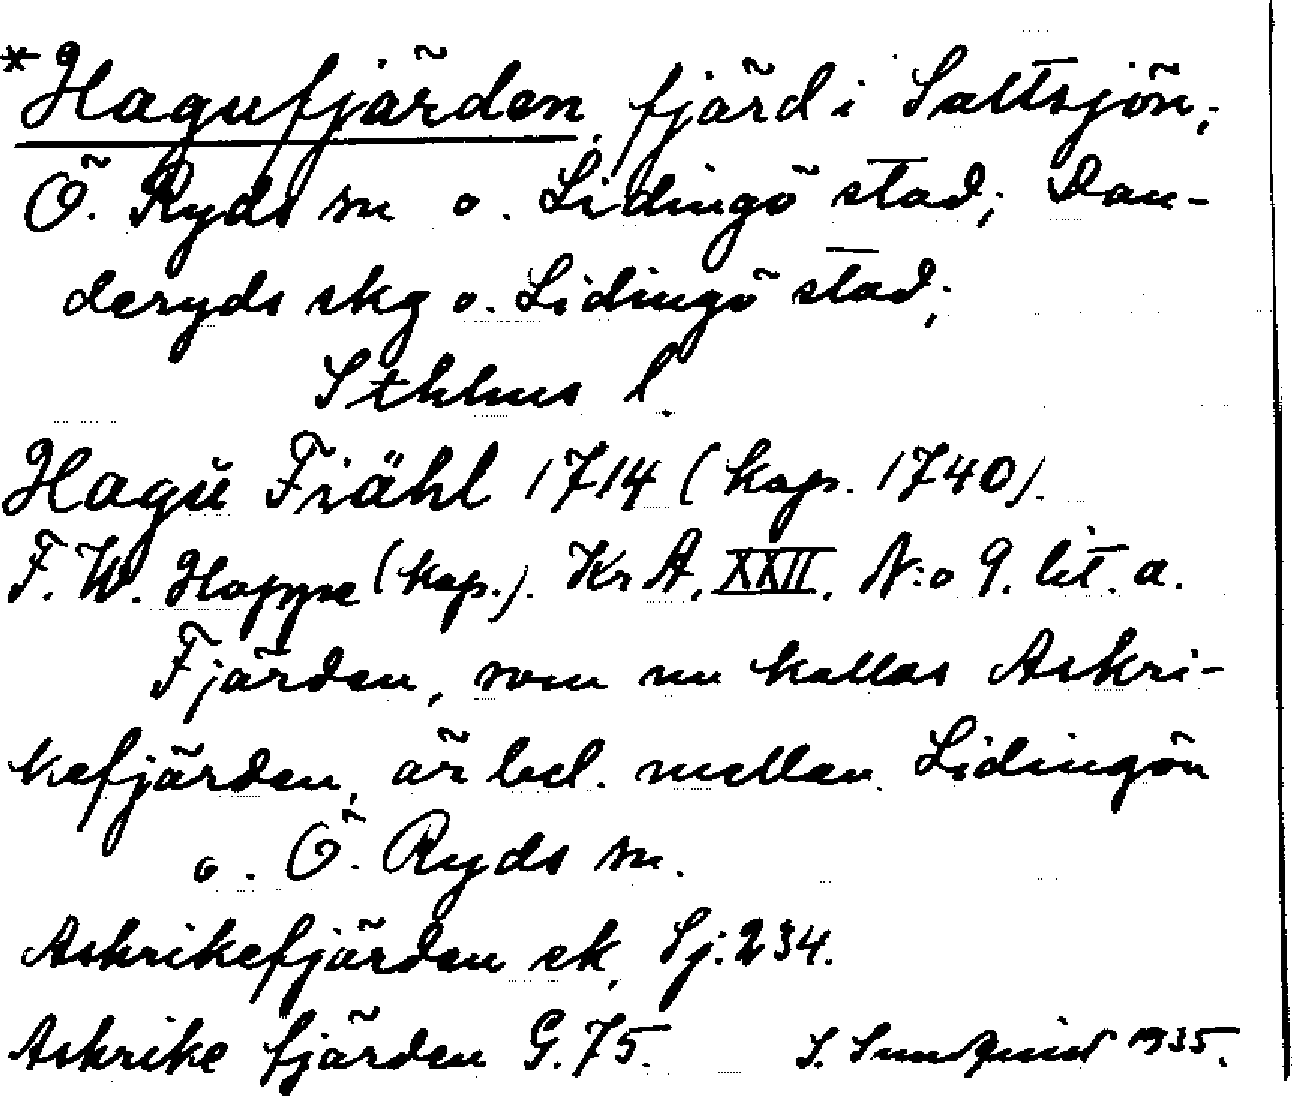 *Hagufjärden, fjärd i Saltsjön;
Ö. Ryds sn o. Lidingö stad; Dan-
deryds skg o. Lidingö stad;
Sthlms l.
Hagŭ Fiähl 1714 (kop. 1740).
F. W. Hoppe (kop.). KrA. XXII. N:o 9. lit. a.
Fjärden, som nu kallas Askri-
kefjärden, är bel. mellan Lidingön
o. Ö. Ryds sn.
Askrikefjärden ek, Sj. 234.
Askrike fjärden G. 75. S. Sundquist 1935.